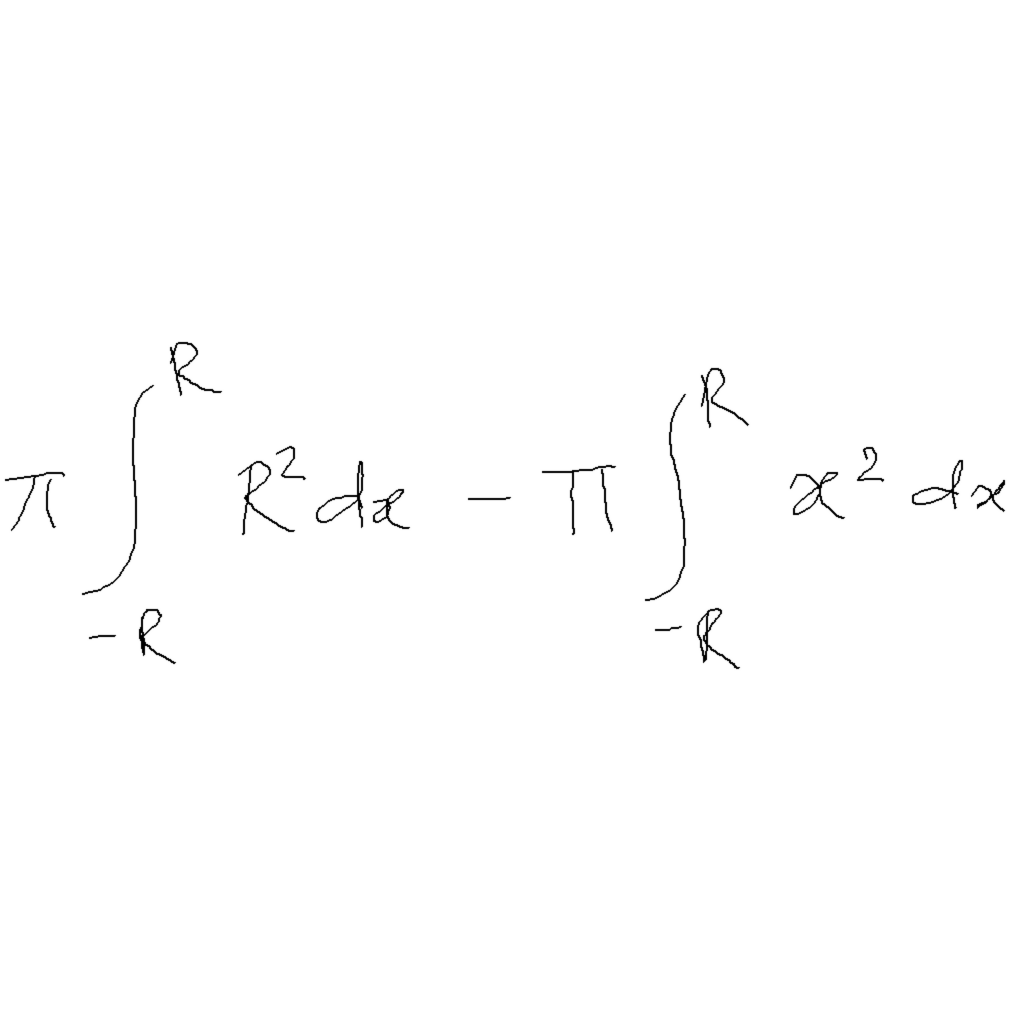 π ∫_{-R}^{R} R² dx − π ∫_{-R}^{R} x² dx